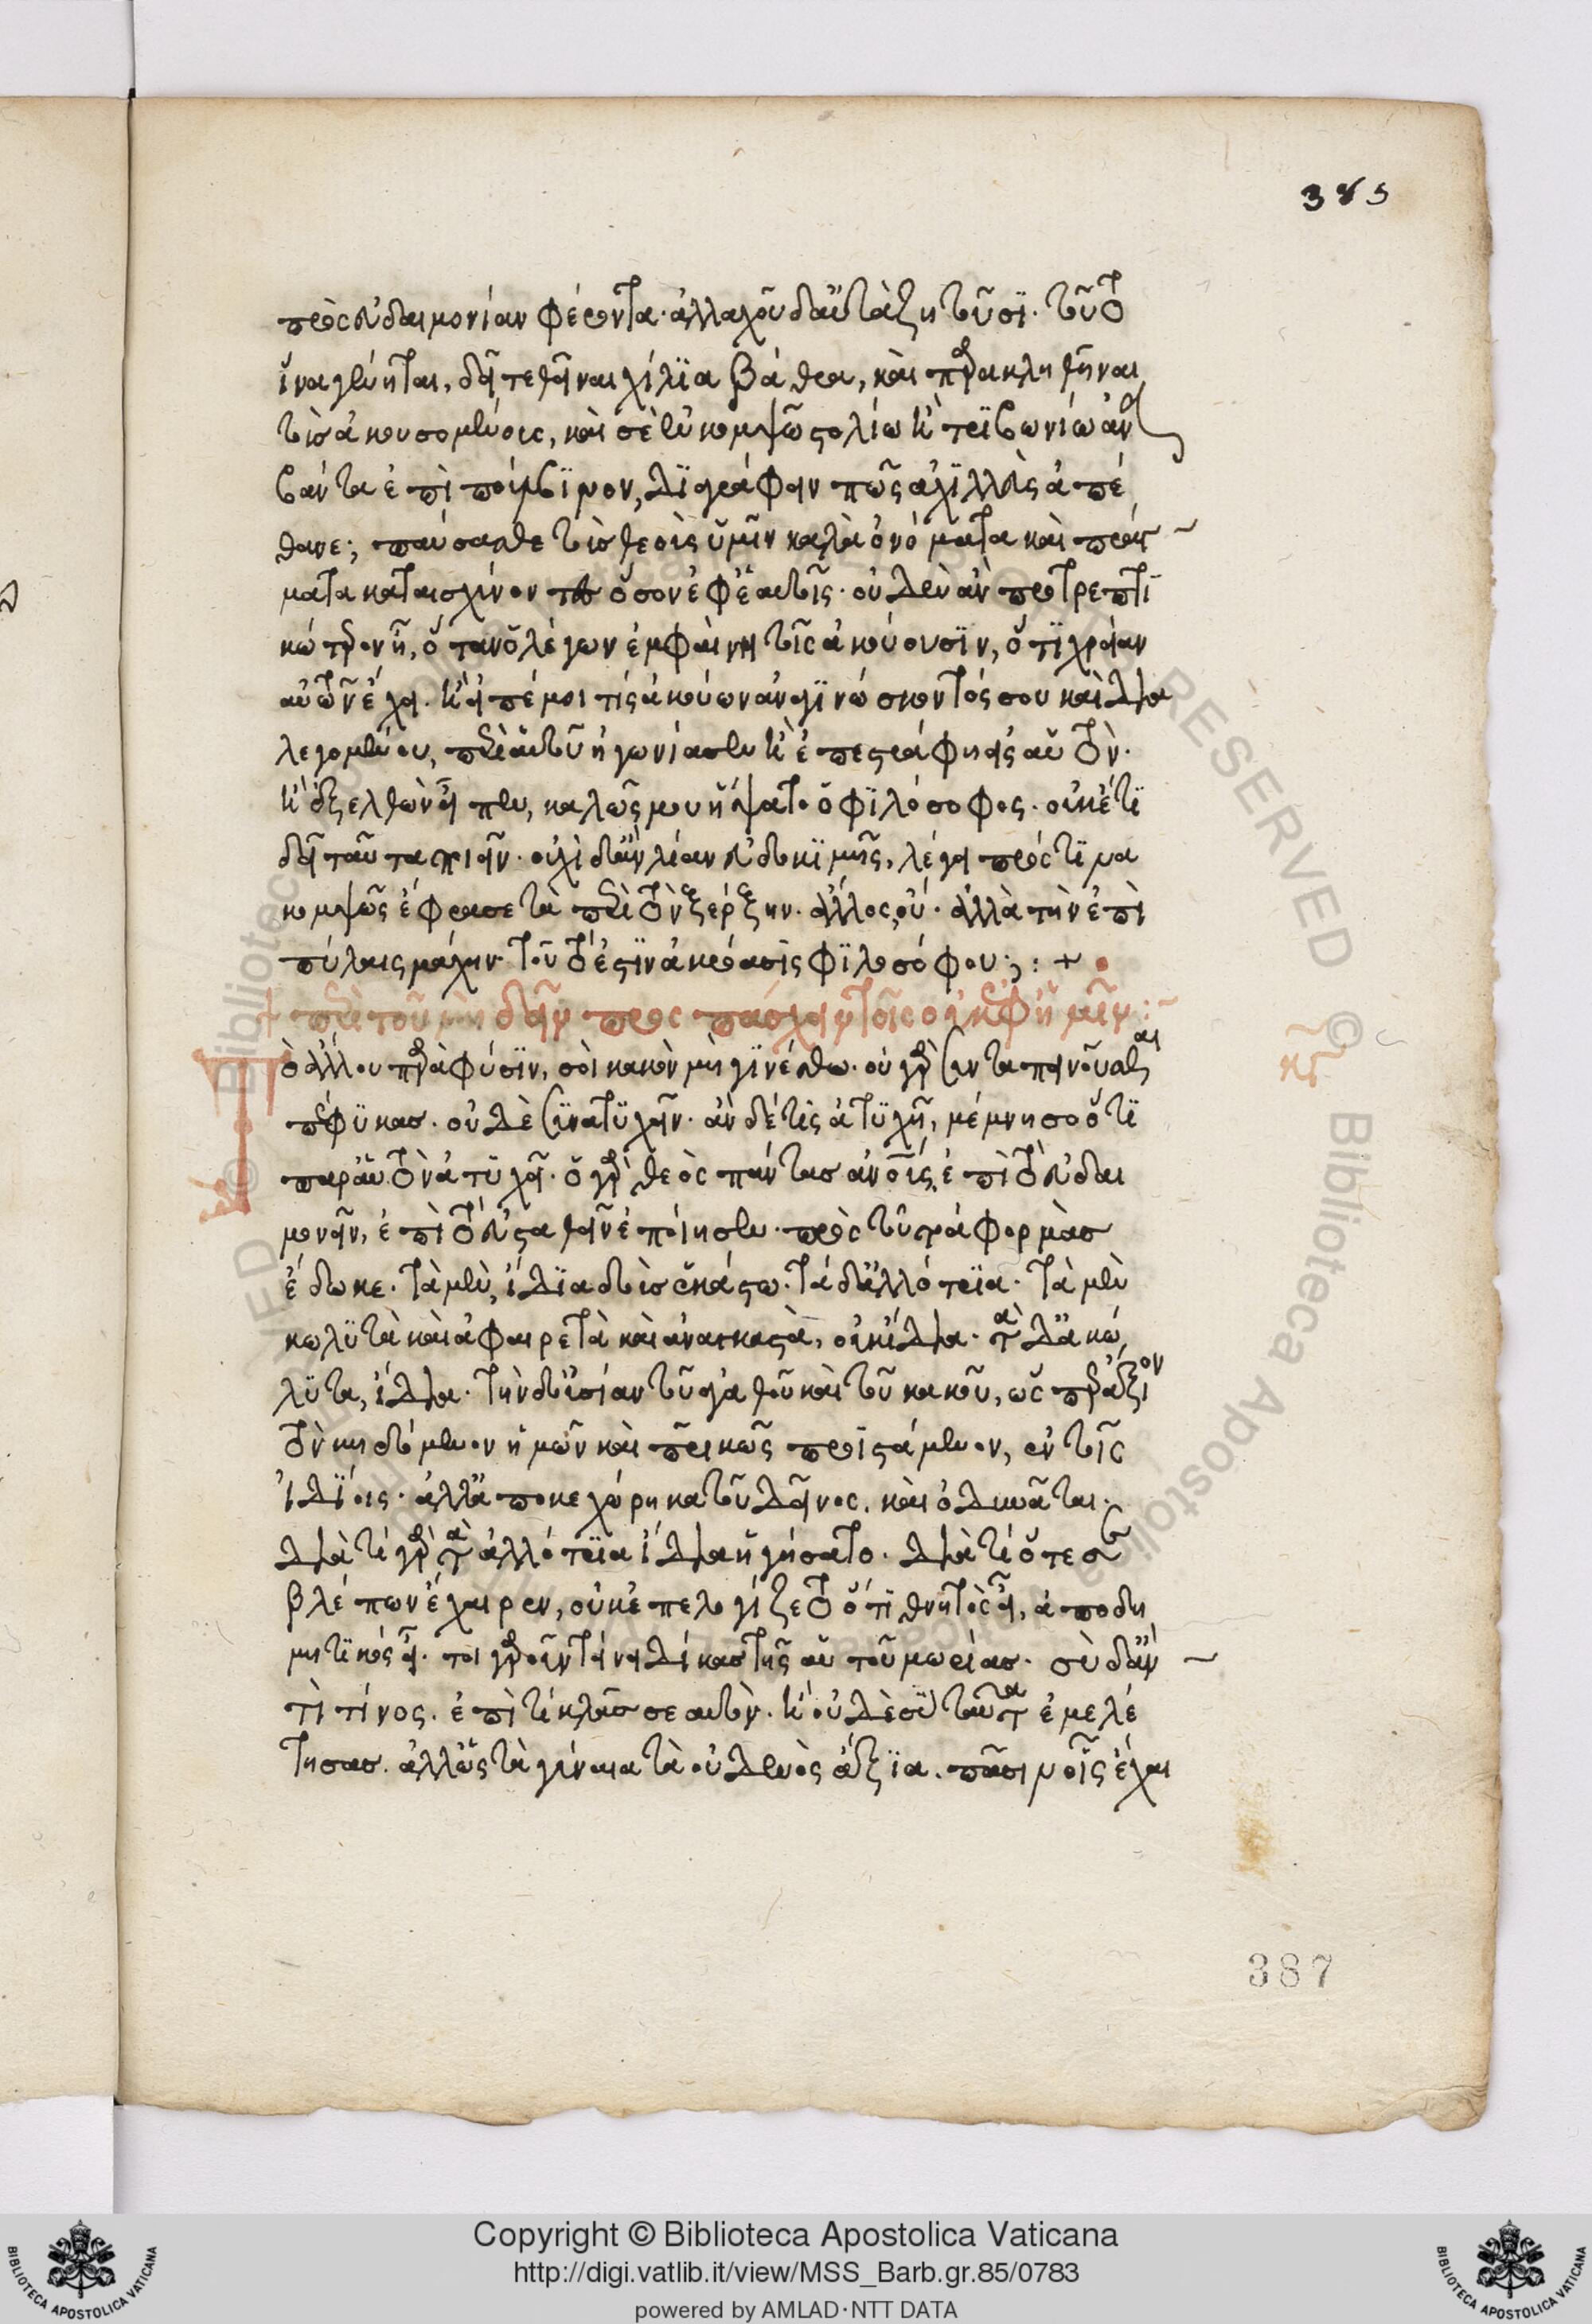 385
πρὸς εὐδαιμονίαν φέροντα. ἀλλαχοῦ δ' αὐτὰ ζητοῦσι. τοῦτο
ἵνα γένηται, δεῖ τεθῆναι χίλια βάθρα, καὶ παρακληθῆναι
τοὺς ἀκουσομένους, καὶ σὲ ἐν κομψῷ στολίῳ ἢ τριβωνίῳ ἀνα
βάντα ἐπὶ πούλβινον, διαγράφειν πῶς ἀχιλλεὺς ἀπέ
θανε; παύσασθε τοὺς θεοὺς ὑμῖν καλὰ ὀνόματα καὶ πράγ
ματα καταισχύνοντες ὅσον ἐφ' ἑαυτοῖς. οὐδὲν ἂν προτρεπτι
κώτερον ᾖ, ὅταν ὁ λέγων ἐμφαίνῃ τοῖς ἀκούουσιν, ὅτι χρείαν
αὐτῶν ἔχει. ἢ εἰπέ μοι τίς ἀκούων ἀναγινώσκοντός σου καὶ δια
λεγομένου, περὶ αὑτοῦ ἠγωνίασεν ἢ ἐπεστράφη εἰς αὑτὸν.
ἢ ἐξελθὼν εἶπεν, καλῶς μου ἥψατο ὁ φιλόσοφος. οὐκέτι
δεῖ ταῦτα ποιεῖν. οὐχὶ δ' ἂν λίαν εὐδοκιμῇς, λέγει πρός τινα
κομψῶς ἔφρασε τὰ περὶ τὸν ξέρξην. ἄλλος, οὔ. ἀλλὰ τὴν ἐπὶ
πύλαις μάχην. τοῦτό ἐστιν ἀκρόασις φιλοσόφου; : +
+ περὶ τοῦ μὴ δεῖν προσπάσχειν τοῖς οὐκ ἐφ' ἡμῖν : ~
κγ
Τὸ ἄλλου παρὰ φύσιν, σοὶ κακὸν μὴ γινέσθω. οὐ γὰρ συνταπεινοῦσθαι
πέφυκας. οὐδὲ συνατυχεῖν. ἂν δέ τις ἀτυχῇ, μέμνησο ὅτι
παρ' αὑτὸν ἀτυχεῖ. ὁ γὰρ θεὸς πάντας ἀνους ἐπὶ τὸ εὐδαι
μονεῖν, ἐπὶ τὸ εὐσταθεῖν ἐποίησεν. πρὸς τοῦτο ἀφορμὰς
ἔδωκε. τὰ μὲν, ἴδια δοὺς ἑκάστῳ. τὰ δ' ἀλλότρια. τὰ μὲν
κωλυτὰ καὶ ἀφαιρετὰ καὶ ἀναγκαστὰ, οὐκ ἴδια. τὰ δ' ἀκώ
λυτα, ἴδια. τὴν δ' οὐσίαν τοῦ ἀγαθοῦ καὶ τοῦ κακοῦ, ὥσπερ ἄξιον
τὸν κηδόμενον ἡμῶν καὶ πρικῶς προϊστάμενον, ἐν τοῖς
ἰδίοις. ἀλλ' ἀποκεχώρηκα τοῦ δεῖνος. καὶ ὀδυνᾶται.
διὰ τί γὰρ τὰ ἀλλότρια ἴδια ἡγήσατο. διὰ τί ὅτε σε
βλέπων ἔχαιρεν, οὐκ ἐπελογίζετο ὅτι θνητὸς εἶ, ἀποδη
μητικὸς εἶ. τοιγαροῦν τίνει δίκας τῆς αὑτοῦ μωρίας. σὺ δ' ἀν
τὶ τίνος. ἐπὶ τί κλᾷς σεαυτὸν. ἢ οὐδὲ σὺ ταῦτα ἐμελέ
τησας. ἀλλ' ὡς τὰ γύναια τὰ οὐδενὸς ἄξια. πᾶσιν οἷς ἔχαι
387
Copyright © Biblioteca Apostolica Vaticana
http://digi.vatlib.it/view/MSS_Barb.gr.85/0783
powered by AMLAD·NTT DATA